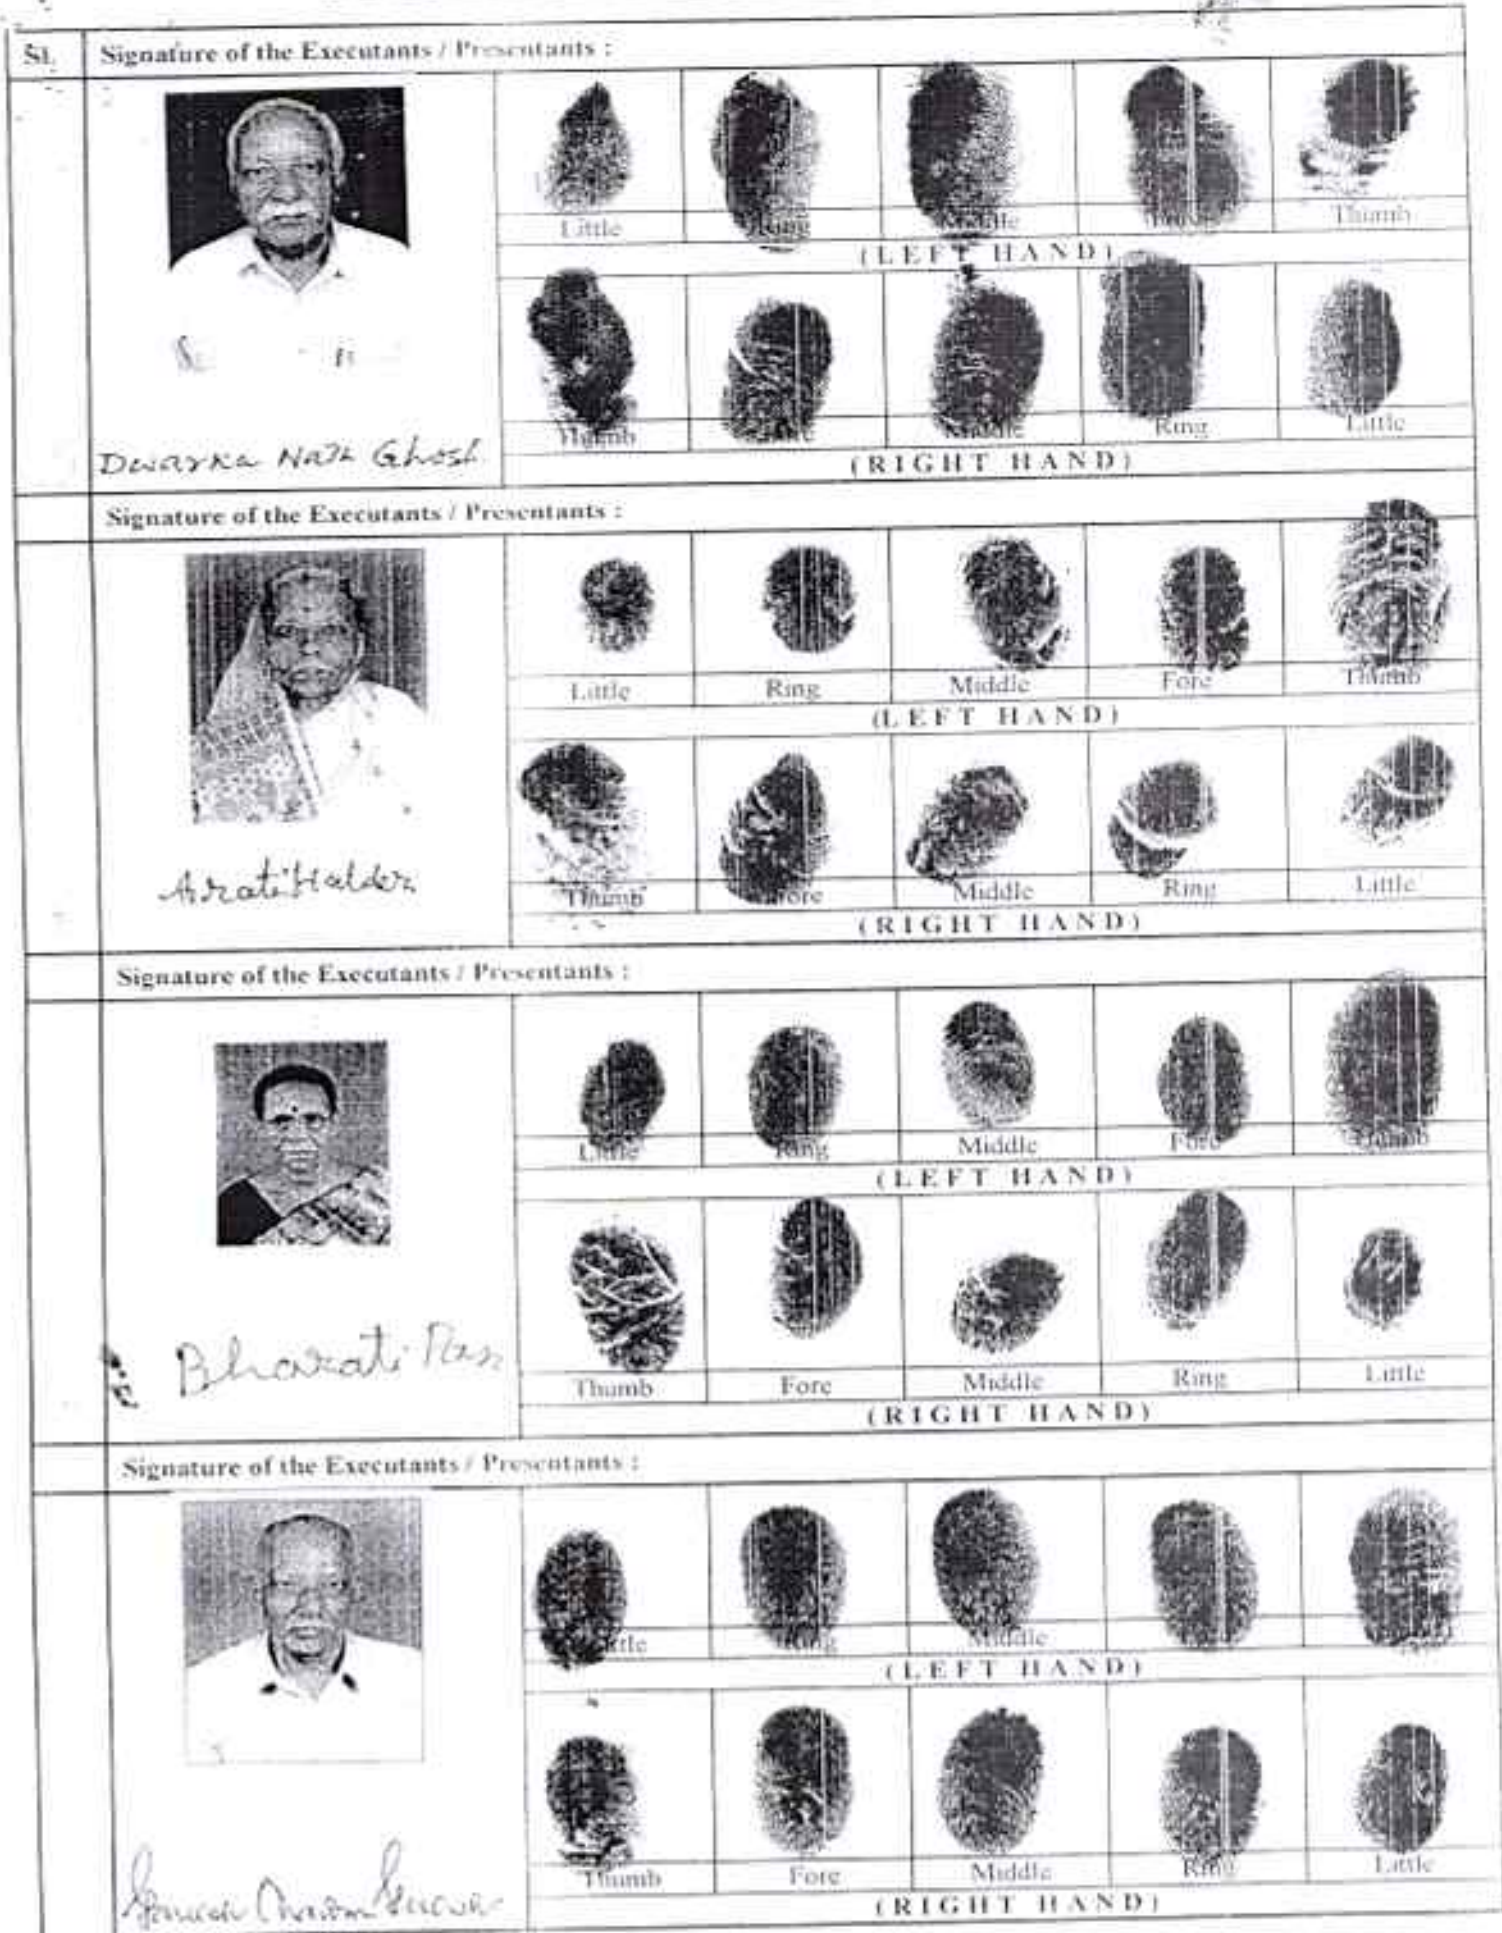 Sl. Signature of the Executants / Presentants :
Little Ring Middle Thumb
(LEFT HAND)
Thumb Fore Middle Ring Little
Dwarka Nath Ghosh
(RIGHT HAND)
Signature of the Executants / Presentants :
Little Ring Middle Fore Thumb
(LEFT HAND)
Arati Halder
Thumb Fore Middle Ring Little
(RIGHT HAND)
Signature of the Executants / Presentants :
Little Ring Middle Fore Thumb
(LEFT HAND)
Bharati
Thumb Fore Middle Ring Little
(RIGHT HAND)
Signature of the Executants / Presentants :
Little Ring Middle
(LEFT HAND)
Thumb Fore Middle Ring Little
(RIGHT HAND)